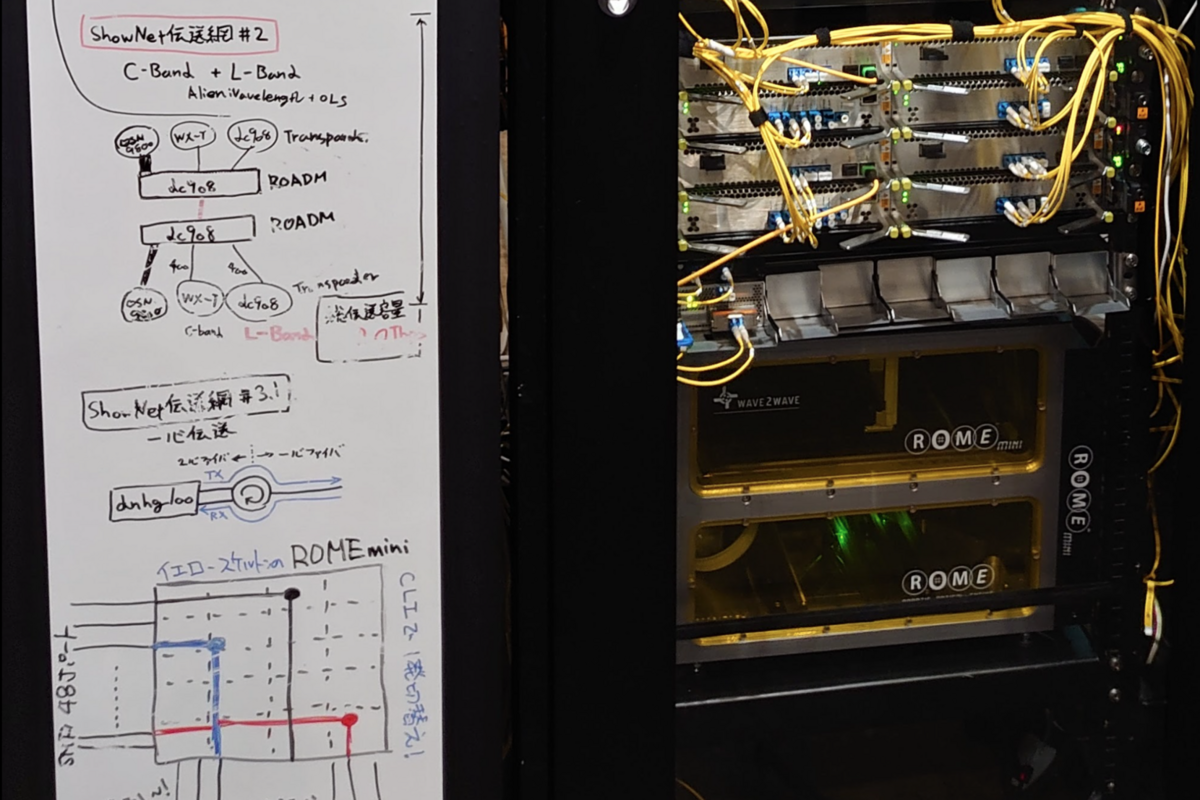 ShowNet伝送網#2
C-Band + L-Band
AlienWavelength + OLS
OSN 9800
WX-T
dc908
dc908
ROADM
dc908
ROADM
400
400
OSN 9800
WX-T
dc908
Transponder
C-band
L-Band
総伝送容量
ShowNet伝送網#3.1
一心伝送
2心ファイバ ← → 一心ファイバ
TX
dnhg-100
RX
イエロースケルトンの ROME mini
CLIで、1発切替え!
48ポート
WAVE2WAVE
ROME mini
ROME mini
ROME